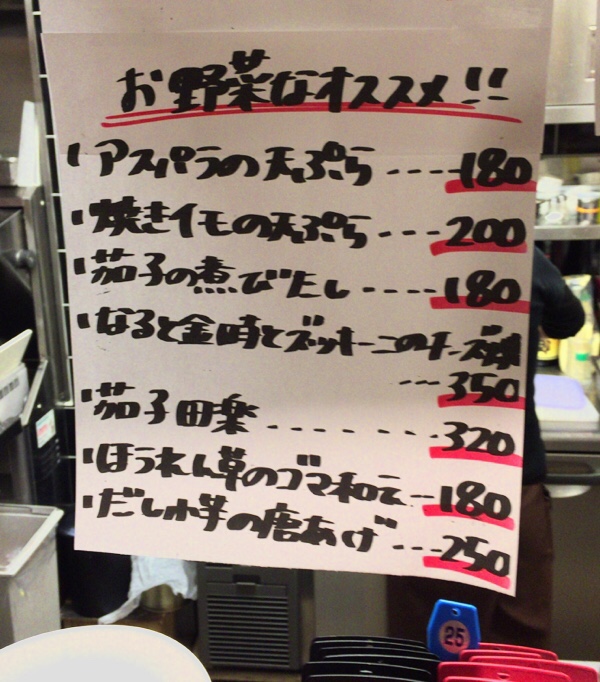 お野菜なオススメ!!
アスパラの天ぷら ---- 180
焼きイモの天ぷら --- 200
茄子の煮びたし ---- 180
なると金時とズッキーニのチーズ焼
--- 350
茄子田楽 ------- 320
ほうれん草のゴマ和え -- 180
だし小芋の唐あげ --- 250
25